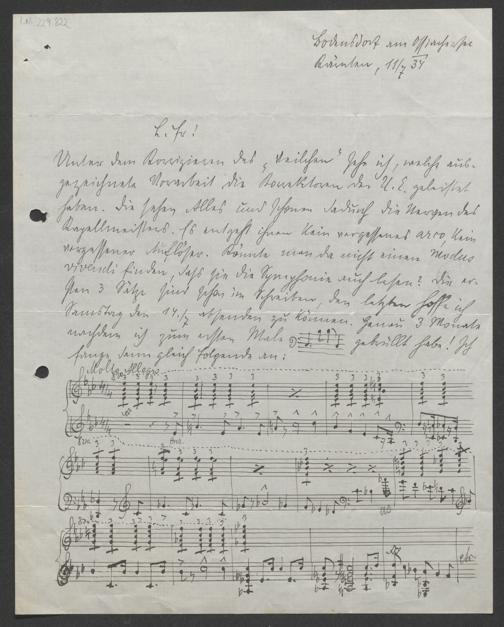 I.N. 229.822
Bodensdorf am Ossiachersee
Kärnten, 11/7 34
L. Fr!
Unter dem Korrigieren des „Veilchen" sehe ich, welche aus-
gezeichnete Vorarbeit die Korrektoren der U. E. geleistet
haben. Die sehen Alles und schonen dadurch die Nerven des
Kapellmeisters. Es entgeht ihnen kein vergessenes arco, kein
vergessener Auflöser. Könnte man da nicht einen Modus
vivendi finden, dass sie die Symphonie auch lesen? Die er-
sten 3 Sätze sind schon im Schreiben, den letzten hoffe ich
Samstag den 14./7 absenden zu können. Genau 3 Monate
nachdem ich zum ersten Male
gebrüllt habe! Ich
fange dann gleich Folgendes an:
Molto Allegro
8va
8va
etc